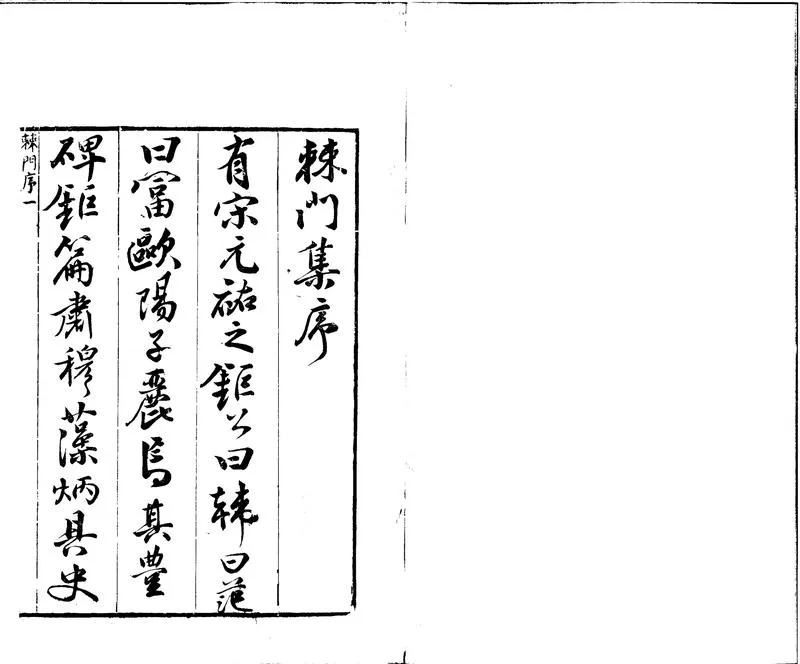 棘門集序
有宋元祐之鉅公曰韓曰范
曰富歐陽子麗焉其豐
碑鉅篇肅穆藻炳具史
棘門序一